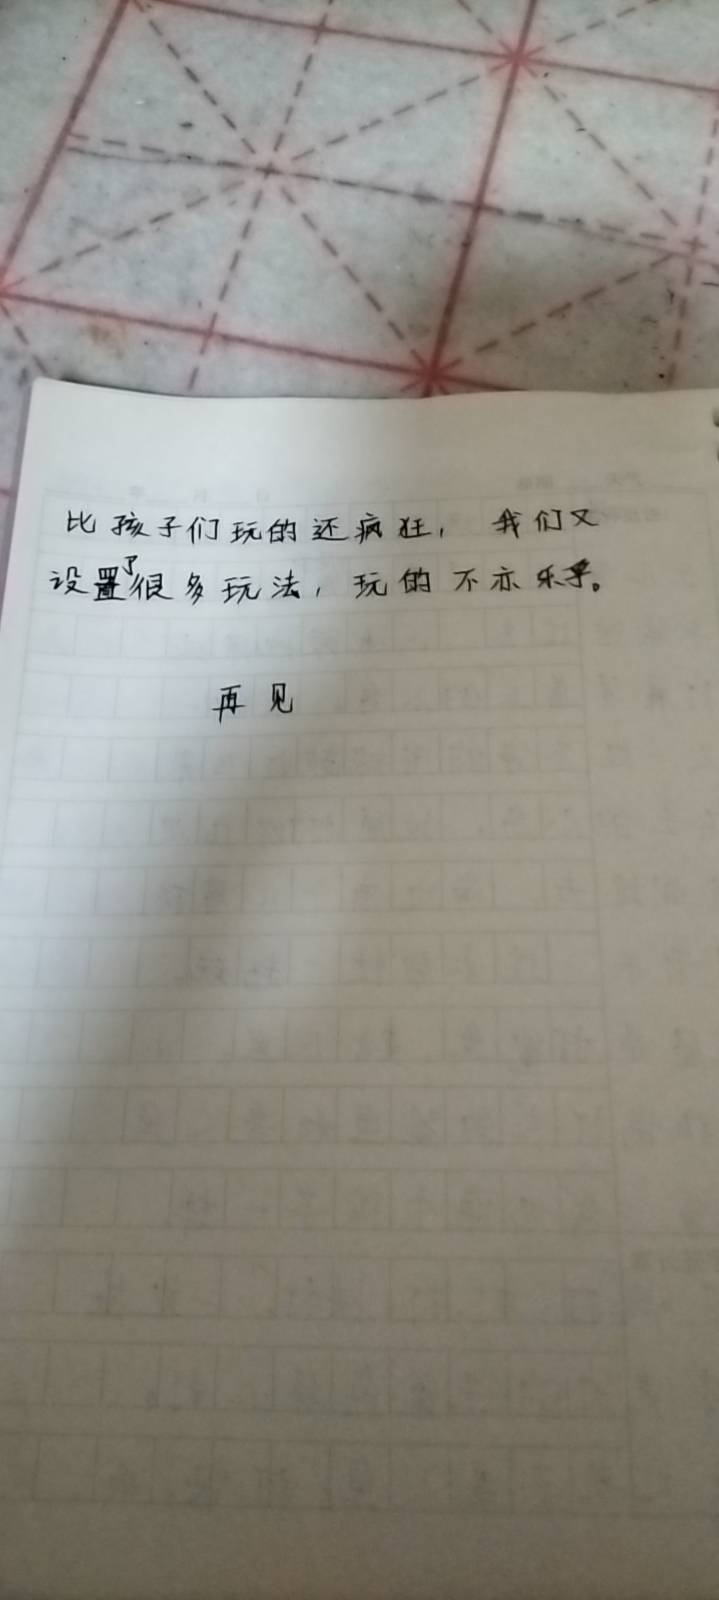 比孩子们玩的还疯狂，我们又
设置了很多玩法，玩的不亦乐乎。
再见